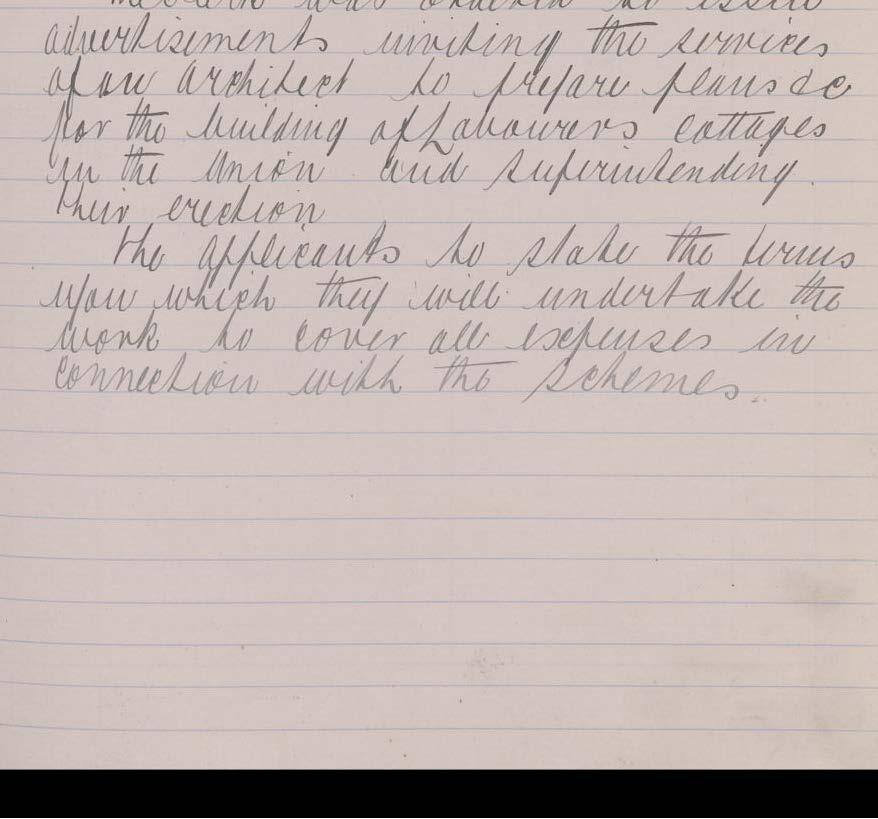 The Clerk was ordered to issue
advertisements inviting the services
of an Architect to prepare plans &c
for the building of Labourers cottages
in the Union and superintending
their erection
The applicants to state the terms
upon which they will undertake the
work to cover all expenses in
connection with the schemes.